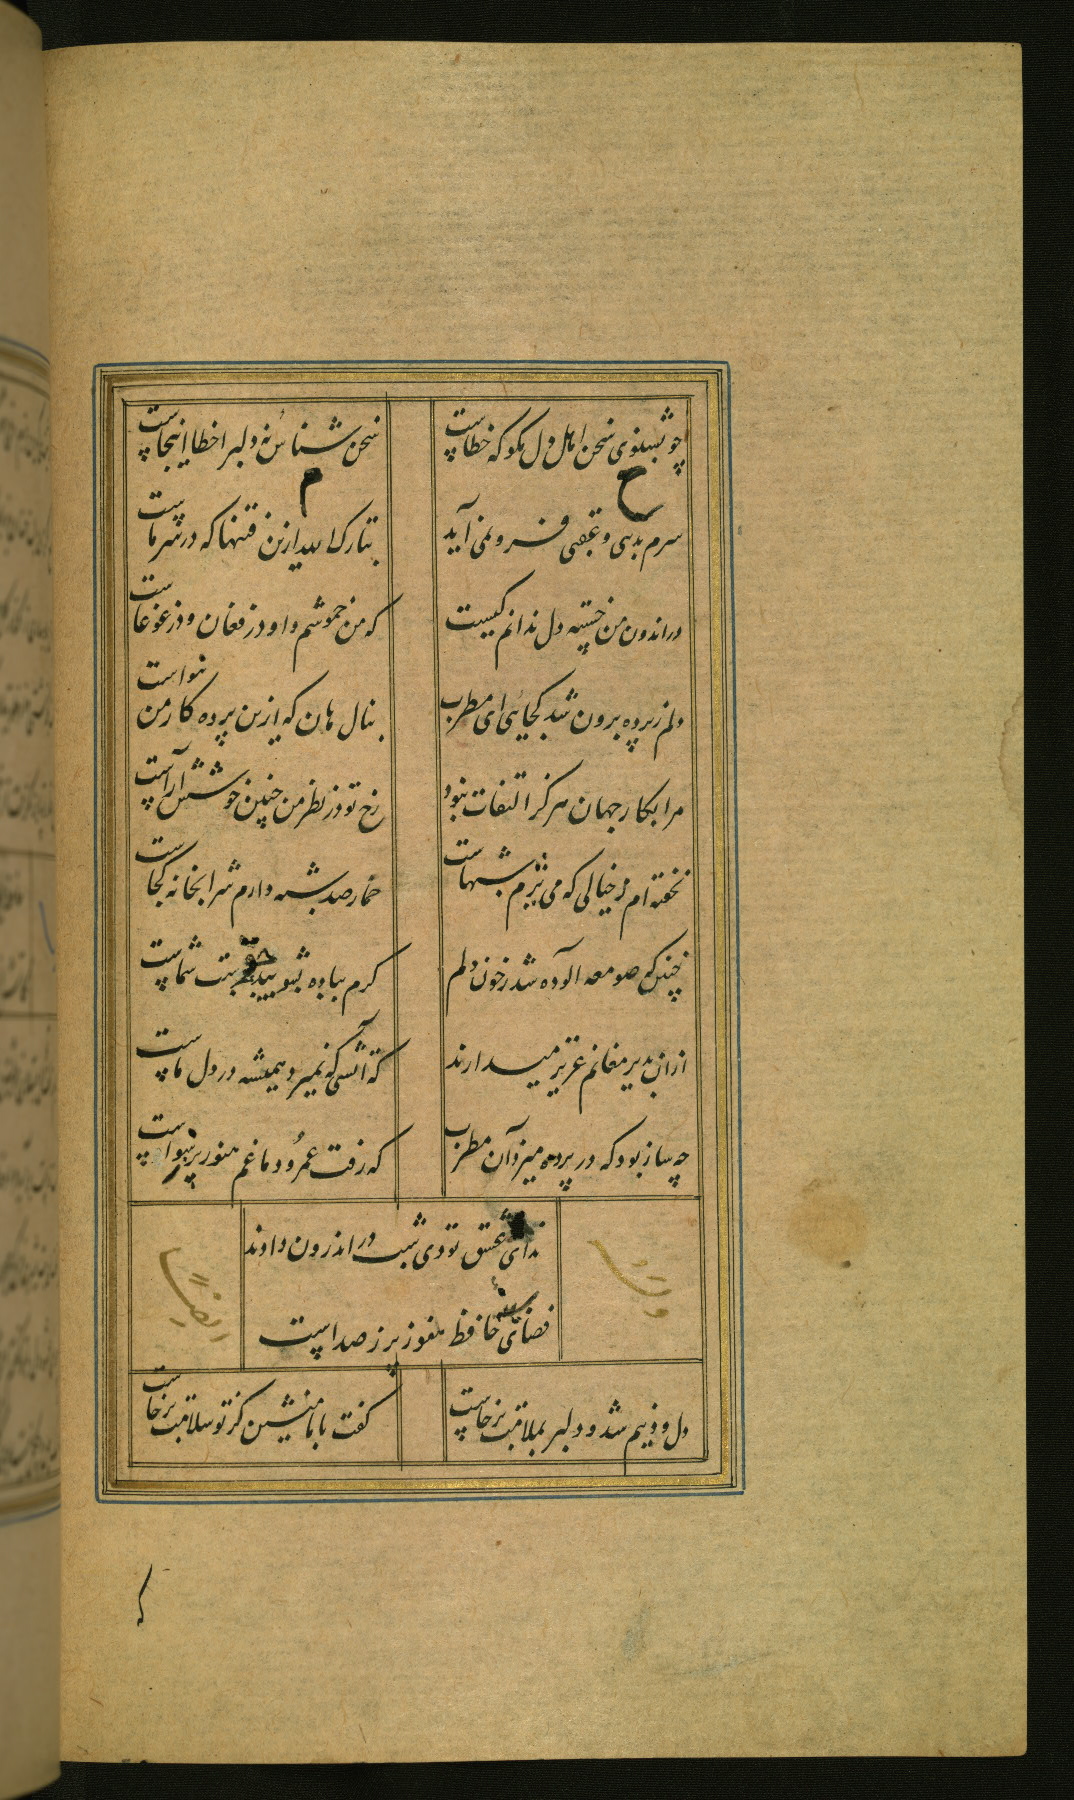 چو بشنوی سخن اهل دل مگو که خطاست
سخن شناس نهٔ دلبرا خطا اینجاست
سرم بدنیی و عقبی فرو نمی آید
تبارک الله ازین فتنها که در سر ماست
در اندرون من خسته دل ندانم کیست
که من خموشم و او در فغان و در غوغاست
دلم ز پرده برون شد کجائی ای مطرب
بنال هان که ازین پرده کار من نواست
مرا بکار جهان هرگز التفات نبود
رخ تو در نظر من چنین خوشش آراست
نخفته ام ز خیالی که می پزم شبهاست
خمار صد شبه دارم شرابخانه کجاست
چنین که صومعه آلوده شد ز خون دلم
گرم بباده بشویید حق بدست شماست
از آن بدیر مغانم عزیز میدارند
که آتشی که نمیرد همیشه در دل ماست
چه ساز بود که در پرده میزد آن مطرب
که رفت عمر و دماغم هنوز پر ز هواست
ندای عشق تو دی شب در اندرون دادند
فضای سینه حافظ هنوز پر ز صداست
وله
ایضا
دل و دینم شد و دلبر بملامت برخاست
گفت با ما منشین کز تو سلامت برخاست
که